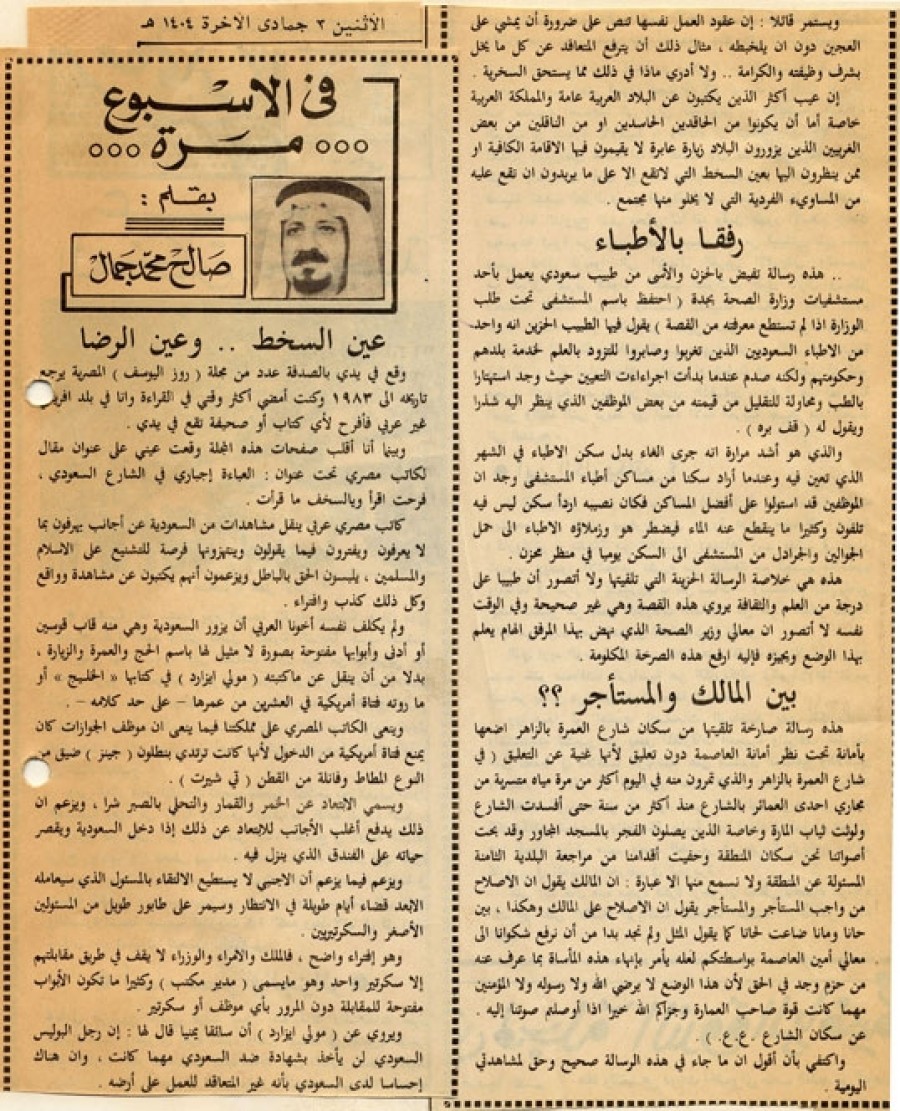 الأثنين ٣ جمادى الآخرة ١٤٠٤ هـ
في الاسبوع
ooo مرة ooo
بقلم :
صالح محمد جمال
عين السخط .. وعين الرضا
وقع في يدي بالصدفة عدد من مجلة ( روز اليوسف ) المصرية يرجع
تاريخه الى ١٩٨٣ وكنت أمضي أكثر وقتي في القراءة وانا في بلد افريقي
غير عربي فأفرح لأي كتاب أو صحيفة تقع في يدي .
وبينما أنا أقلب صفحات هذه المجلة وقعت عيني على عنوان مقال
لكاتب مصري تحت عنوان : العباءة إجباري في الشارع السعودي ،
فرحت اقرأ وياللسخف ما قرأت .
كاتب مصري عربي ينقل مشاهدات من السعودية عن أجانب يهرفون بما
لا يعرفون ويفترون فيما يقولون وينتهزونها فرصة للتشنيع على الاسلام
والمسلمين ، يلبسون الحق بالباطل ويزعمون أنهم يكتبون عن مشاهدة وواقع
وكل ذلك كذب وافتراء .
ولم يكلف نفسه أخونا العربي أن يزور السعودية وهي منه قاب قوسين
أو أدنى وأبوابها مفتوحة بصورة لا مثيل لها باسم الحج والعمرة والزيارة ،
بدلا من أن ينقل عن ماكتبته ( مولي ايزارد ) في كتابها « الخليج » أو
ما روته فتاة أمريكية في العشرين من عمرها – على حد كلامه – .
وينعى الكاتب المصري على مملكتنا فيما ينعى ان موظف الجوازات كان
يمنع فتاة أمريكية من الدخول لأنها كانت ترتدي بنطلون ( جينز ) ضيق من
النوع المطاط وفانلة من القطن ( تي شيرت ) .
ويسمي الابتعاد عن الخمر والقمار والتحلي بالصبر شرا ، ويزعم ان
ذلك يدفع أغلب الأجانب للابتعاد عن ذلك إذا دخل السعودية ويقصر
حياته على الفندق الذي ينزل فيه .
ويزعم فيما يزعم أن الاجنبي لا يستطيع الالتقاء بالمسئول الذي سيعامله
الابعد قضاء أيام طويلة في الانتظار وسيمر على طابور طويل من المسئولين
الأصغر والسكرتيريين .
وهو إفتراء واضح ، فالملك والامراء والوزراء لا يقف في طريق مقابلتهم
إلا سكرتير واحد وهو مايسمى ( مدير مكتب ) وكثيرا ما تكون الأبواب
مفتوحة للمقابلة دون المرور بأي موظف أو سكرتير .
ويروي عن ( مولي ايزارد ) أن سائقا يمنيا قال لها : إن رجل البوليس
السعودي لن يأخذ بشهادة ضد السعودي مهما كانت ، وان هناك
إحساسا لدى السعودي بأنه غير المتعاقد للعمل على أرضه .
ويستمر قائلا : إن عقود العمل نفسها تنص على ضرورة أن يمشي على
العجين دون ان يلخبطه ، مثال ذلك أن يترفع المتعاقد عن كل ما يخل
بشرف وظيفته والكرامة .. ولا أدري ماذا في ذلك مما يستحق السخرية .
إن عيب أكثر الذين يكتبون عن البلاد العربية عامة والمملكة العربية
خاصة أما أن يكونوا من الحاقدين الحاسدين او من الناقلين من بعض
الغربيين الذين يزورون البلاد زيارة عابرة لا يقيمون فيها الاقامة الكافية او
ممن ينظرون اليها بعين السخط التي لاتقع الا على ما يريدون ان تقع عليه
من المساويء الفردية التي لا يخلو منها مجتمع .
رفقا بالأطباء
.. هذه رسالة تفيض بالحزن والأسى من طبيب سعودي يعمل بأحد
مستشفيات وزارة الصحة بجدة ( احتفظ باسم المستشفى تحت طلب
الوزارة اذا لم تستطع معرفته من القصة ) يقول فيها الطبيب الحزين انه واحد
من الاطباء السعوديين الذين تغربوا وصابروا للتزود بالعلم لخدمة بلدهم
وحكومتهم ولكنه صدم عندما بدأت اجراءات التعيين حيث وجد استهتارا
بالطب ومحاولة للتقليل من قيمته من بعض الموظفين الذي ينظر اليه شذرا
ويقول له ( قف بره ) .
والذي هو أشد مرارة انه جرى الغاء بدل سكن الاطباء في الشهر
الذي تعين فيه وعندما أراد سكنا من مساكن أطباء المستشفى وجد ان
الموظفين قد استولوا على أفضل المساكن فكان نصيبه اردأ سكن ليس فيه
تلفون وكثيرا ما ينقطع عنه الماء فيضطر هو وزملاؤه الاطباء الى حمل
الجوالين والجرادل من المستشفى الى السكن يوميا في منظر محزن .
هذه هي خلاصة الرسالة الحزينة التي تلقيتها ولا أتصور أن طبيبا على
درجة من العلم والثقافة يروي هذه القصة وهي غير صحيحة وفي الوقت
نفسه لا أتصور ان معالي وزير الصحة الذي نهض بهذا المرفق الهام يعلم
بهذا الوضع ويجيزه فإليه ارفع هذه الصرخة المكلومة .
بين المالك والمستأجر ؟؟
هذه رسالة صارخة تلقيتها من سكان شارع العمرة بالزاهر اضعها
بأمانة تحت نظر أمانة العاصمة دون تعليق لأنها غنية عن التعليق ( في
شارع العمرة بالزاهر والذي تمرون منه في اليوم أكثر من مرة مياه متسربة من
مجاري احدى العمائر بالشارع منذ أكثر من سنة حتى أفسدت الشارع
ولوثت ثياب المارة وخاصة الذين يصلون الفجر بالمسجد المجاور وقد بحت
أصواتنا نحن سكان المنطقة وحفيت أقدامنا من مراجعة البلدية الثامنة
المسئولة عن المنطقة ولا نسمع منها الا عبارة : ان المالك يقول ان الاصلاح
من واجب المستأجر والمستأجر يقول ان الاصلاح على المالك وهكذا ، بين
حانا ومانا ضاعت لحانا كما يقول المثل ولم نجد بدا من أن نرفع شكوانا الى
معالي أمين العاصمة بواسطتكم لعله يأمر بإنهاء هذه المأساة بما عرف عنه
من حزم وجد في الحق لأن هذا الوضع لا يرضي الله ولا رسوله ولا المؤمنين
مهما كانت قوة صاحب العمارة وجزاكم الله خيرا اذا أوصلتم صوتنا إليه .
عن سكان الشارع .ع.ع. ) .
واكتفي بأن أقول ان ما جاء في هذه الرسالة صحيح وحق لمشاهدتي
اليومية .